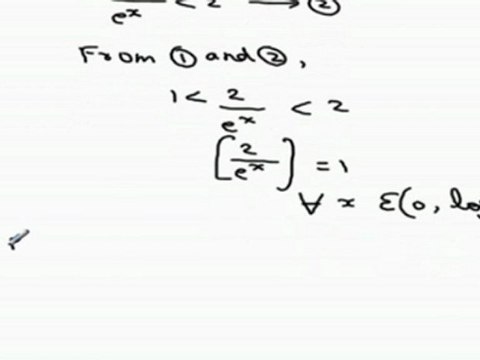 /e^x < 2 → ②
From ① and ②,
1 < 2/e^x < 2
[2/e^x] = 1
∀ x ε(0, log